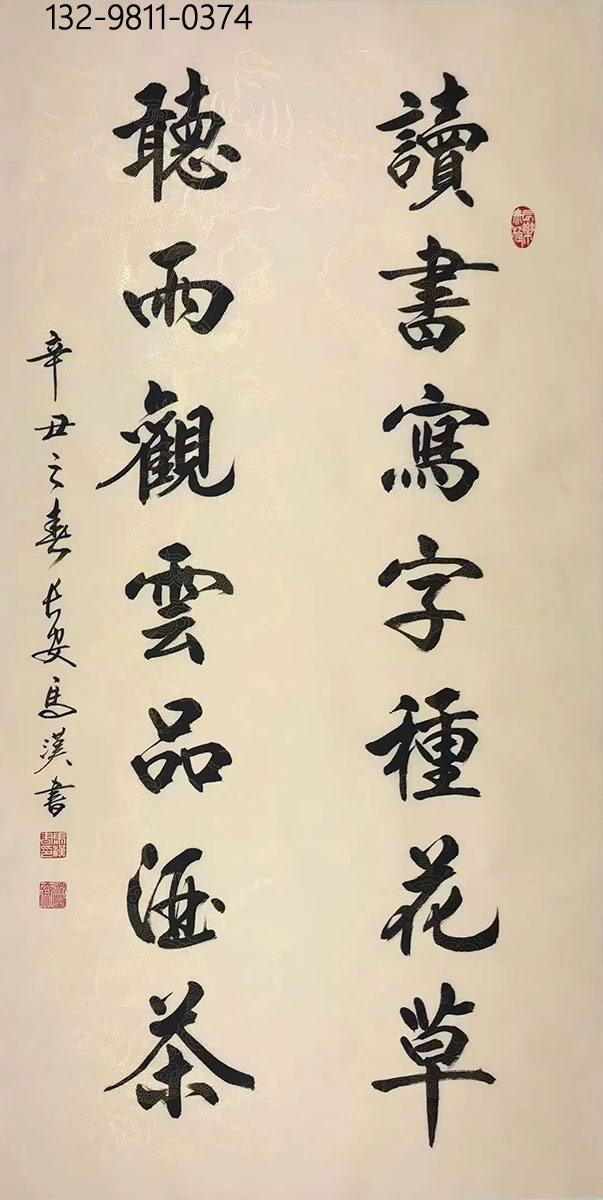 132-9811-0374
讀書寫字種花草
聽雨觀雲品酒茶
辛丑之春長安馬漢書